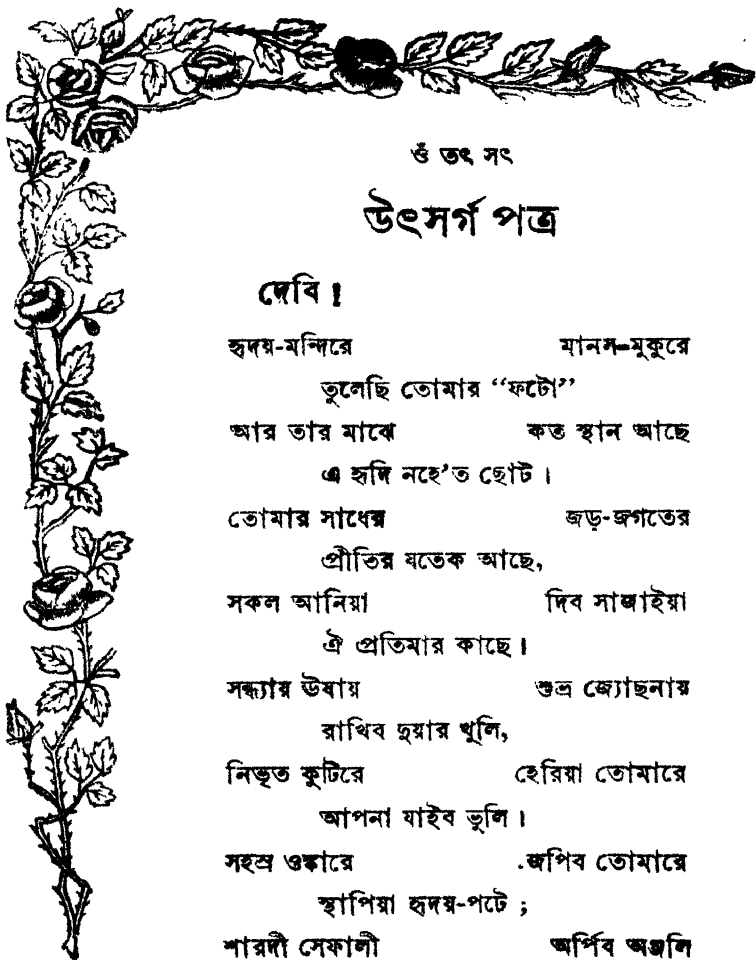 ওঁ তৎ সৎ
উৎসর্গ পত্র
দেবি !
হৃদয়-মন্দিরে মানস-মুকুরে
তুলেছি তোমার “ফটো”
আর তার মাঝে কত স্থান আছে
এ হৃদি নহে'ত ছোট ।
তোমার সাধের জড়-জগতের
প্রীতির যতেক আছে,
সকল আনিয়া দিব সাজাইয়া
ঐ প্রতিমার কাছে ।
সন্ধ্যায় ঊষায় শুভ্র জ্যোছনায়
রাখিব দুয়ার খুলি,
নিভৃত কুটিরে হেরিয়া তোমারে
আপনা যাইব ভুলি ।
সহস্র ওঙ্কারে জপিব তোমারে
স্থাপিয়া হৃদয়-পটে ;
শারদী সেফালী অর্পিব অঞ্জলি